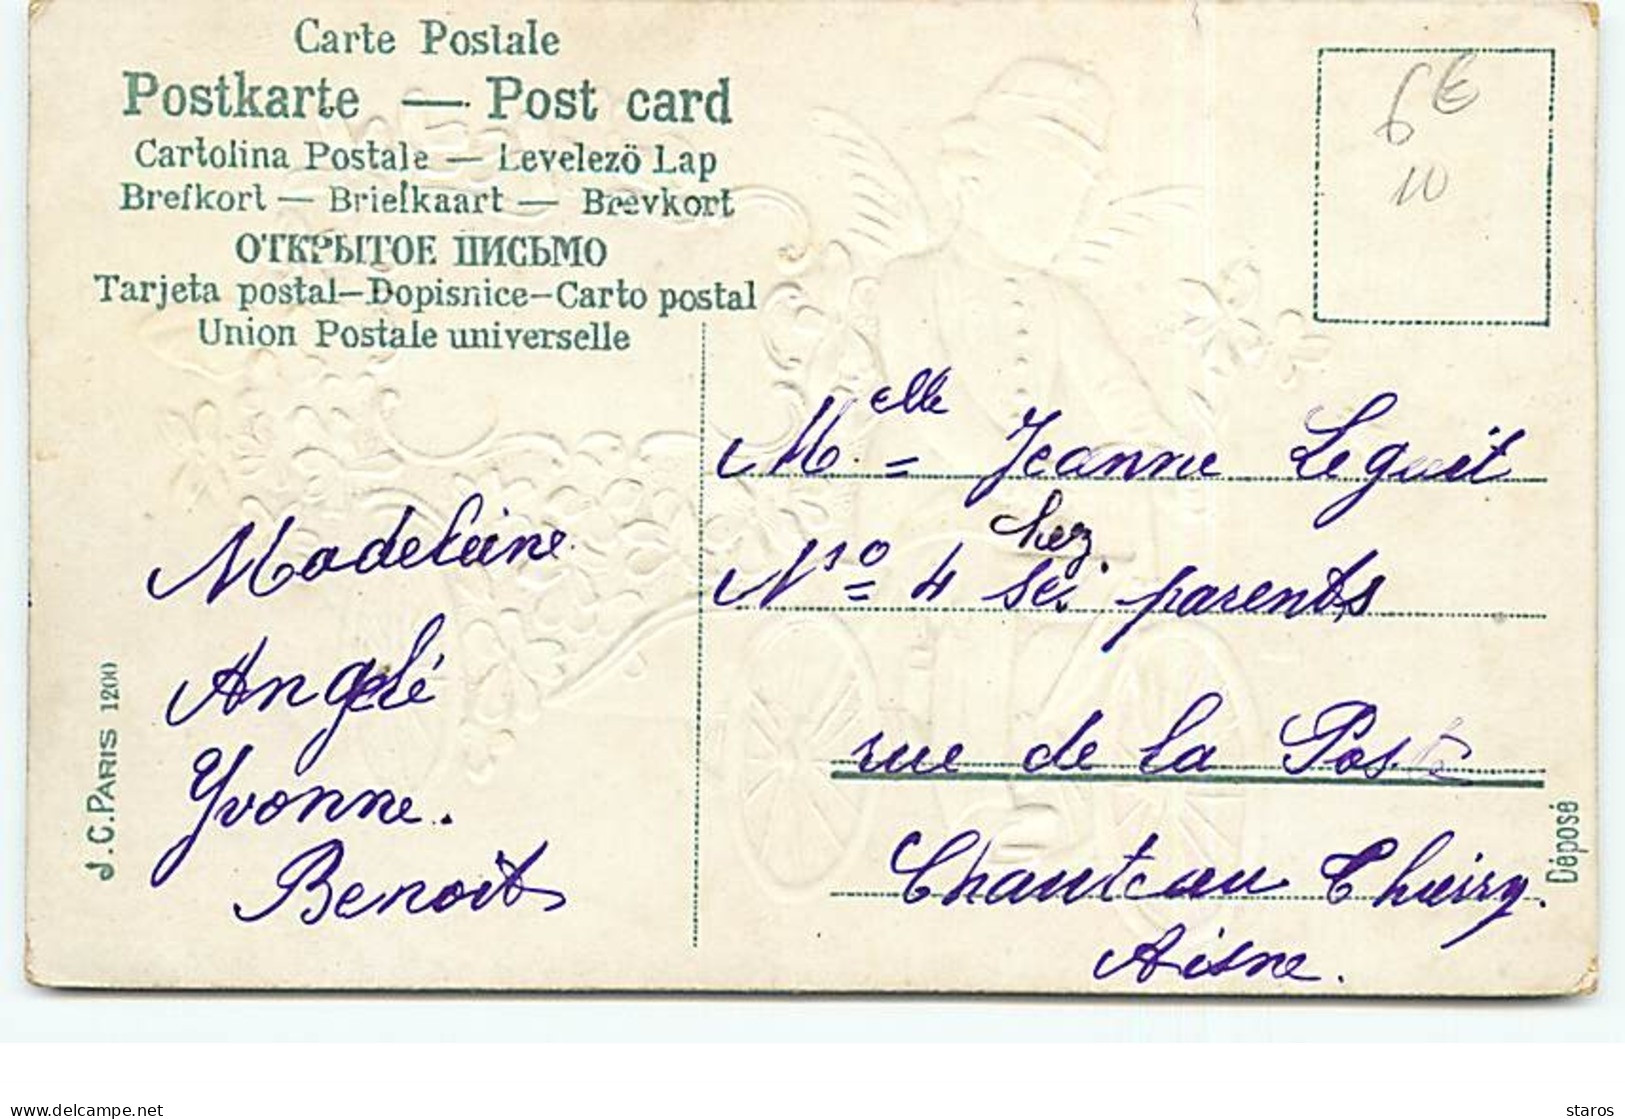 Carte Postale
Postkarte — Post card
Cartolina Postale — Levelezö Lap
Brefkort — Briefkaart — Brevkort
ОТКРЫТОЕ ПИСЬМО
Tarjeta postal—Dopisnice—Carto postal
Union Postale universelle
6€
10
Melle Jeanne Leguit
chez
No 4 ses parents
rue de la Poste
Chanteau Thiéry.
Aisne.
Madeleine
Angelé
Yvonne.
Benoit
J.C. PARIS 1200
Déposé
delcampe.net
staros